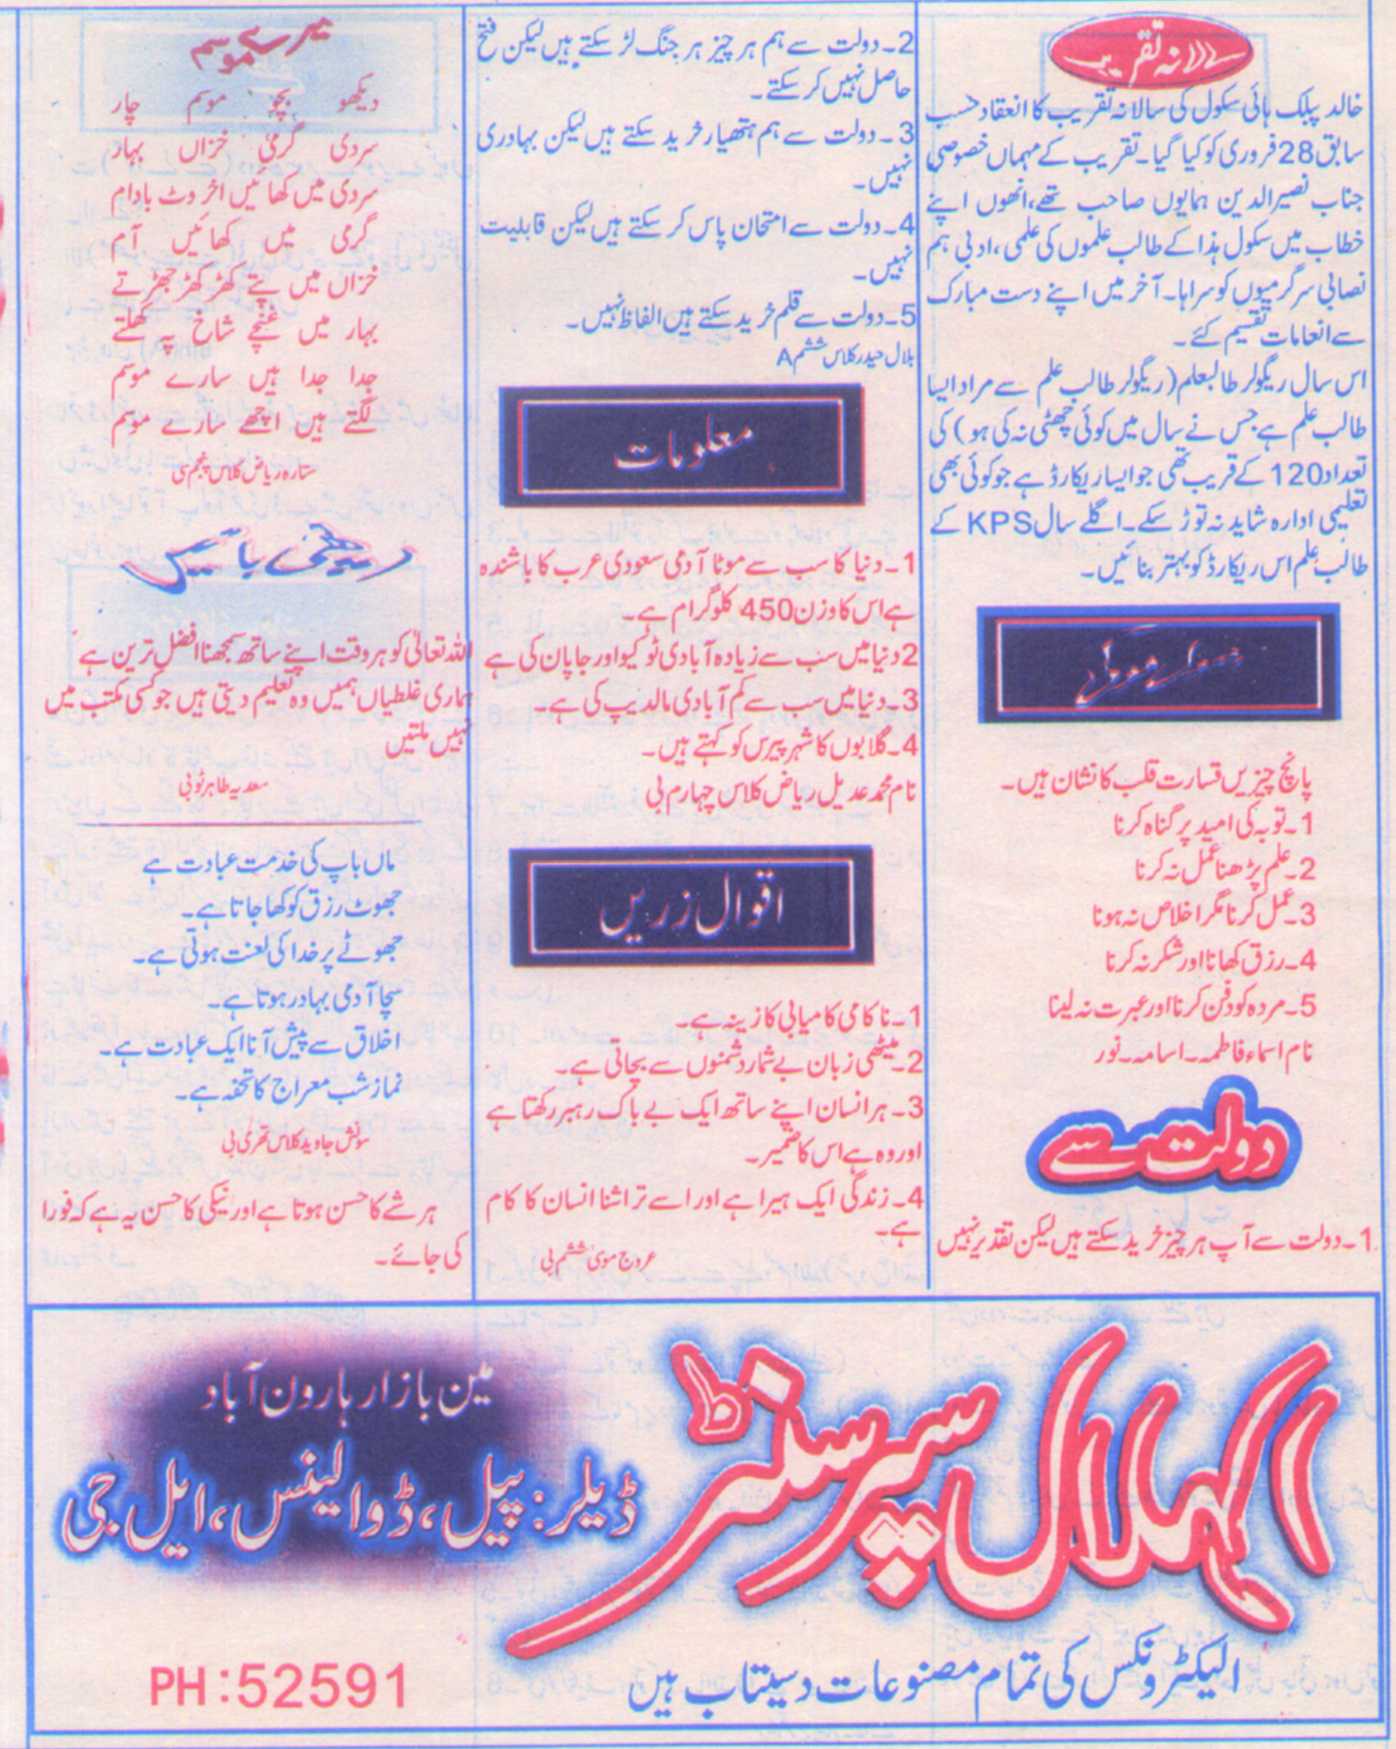 سالانہ تقریب
خالد پبلک ہائی سکول کی سالانہ تقریب کا انعقاد حسب
سابق 28 فروری کو کیا گیا۔ تقریب کے مہمان خصوصی
جناب نصیر الدین ہمایوں صاحب تھے، انھوں اپنے
خطاب میں سکول ہذا کے طالب علموں کی علمی، ادبی ہم
نصابی سرگرمیوں کو سراہا۔ آخر میں اپنے دست مبارک
سے انعامات تقسیم کئے۔
اس سال ریگولر طالبعلم (ریگولر طالب علم سے مراد ایسا
طالب علم ہے جس نے سال میں کوئی چھٹی نہ کی ہو) کی
تعداد 120 کے قریب تھی جو ایسا ریکارڈ ہے جو کوئی بھی
تعلیمی ادارہ شاید نہ توڑ سکے۔ اگلے سال KPS کے
طالب علم اس ریکارڈ کو بہتر بنائیں۔
پانچ چیزیں قسارت قلب کا نشان ہیں۔
1۔ توبہ کی امید پر گناہ کرنا
2۔ علم پڑھنا عمل نہ کرنا
3۔ عمل کرنا مگر اخلاص نہ ہونا
4۔ رزق کھانا اور شکر نہ کرنا
5۔ مردہ کو دفن کرنا اور عبرت نہ لینا
نام اسماء فاطمہ۔ اسامہ۔ نور
دولت سے
1۔ دولت سے آپ ہر چیز خرید سکتے ہیں لیکن تقدیر نہیں
2۔ دولت سے ہم ہر چیز ہر جنگ لڑ سکتے ہیں لیکن فتح
حاصل نہیں کر سکتے۔
3۔ دولت سے ہم ہتھیار خرید سکتے ہیں لیکن بہادری
نہیں۔
4۔ دولت سے امتحان پاس کر سکتے ہیں لیکن قابلیت
نہیں۔
5۔ دولت سے قلم خرید سکتے ہیں الفاظ نہیں۔
بلال حیدر کلاس ششم A
معلومات
1۔ دنیا کا سب سے موٹا آدمی سعودی عرب کا باشندہ
ہے اس کا وزن 450 کلوگرام ہے۔
2 دنیا میں سب سے زیادہ آبادی ٹوکیو اور جاپان کی ہے
3۔ دنیا میں سب سے کم آبادی مالدیپ کی ہے۔
4۔ گلابوں کا شہر پیرس کو کہتے ہیں۔
نام محمد عدیل ریاض کلاس چہارم بی
اقوال زریں
1۔ ناکامی کامیابی کا زینہ ہے۔
2۔ میٹھی زبان بے شمار دشمنوں سے بچاتی ہے۔
3۔ ہر انسان اپنے ساتھ ایک بے باک رہبر رکھتا ہے
اور وہ ہے اس کا ضمیر۔
4۔ زندگی ایک ہیرا ہے اور اسے تراشنا انسان کا کام
ہے۔
عروج موسیٰ ششم بی
میرے موسم
دیکھو بچو موسم چار
سردی گرمی خزاں بہار
سردی میں کھائیں اخروٹ بادام
گرمی میں کھائیں آم
خزاں میں پتے کھڑ کھڑ جھڑتے
بہار میں غنچے شاخ پہ کھلتے
جدا جدا ہیں سارے موسم
لگتے ہیں اچھے سارے موسم
ستارہ ریاض کلاس پنجم سی
میٹھی باتیں
اللہ تعالیٰ کو ہر وقت اپنے ساتھ سمجھنا افضل ترین ہے
ہماری غلطیاں ہمیں وہ تعلیم دیتی ہیں جو کسی مکتب میں
نہیں ملتیں
سعدیہ طاہر ٹو بی
ماں باپ کی خدمت عبادت ہے
جھوٹ رزق کو کھا جاتا ہے۔
جھوٹے پر خدا کی لعنت ہوتی ہے۔
سچا آدمی بہادر ہوتا ہے۔
اخلاق سے پیش آنا ایک عبادت ہے۔
نماز شب معراج کا تحفہ ہے۔
جاوید کلاس تھری بی
ہر شے کا حسن ہوتا ہے اور نیکی کا حسن یہ ہے کہ فورا
کی جائے۔
الہلال سپر سنٹر
مین بازار ہارون آباد
ڈیلر: پیل، ڈوالینس، ایل جی
الیکٹرونکس کی تمام مصنوعات دستیاب ہیں
PH:52591